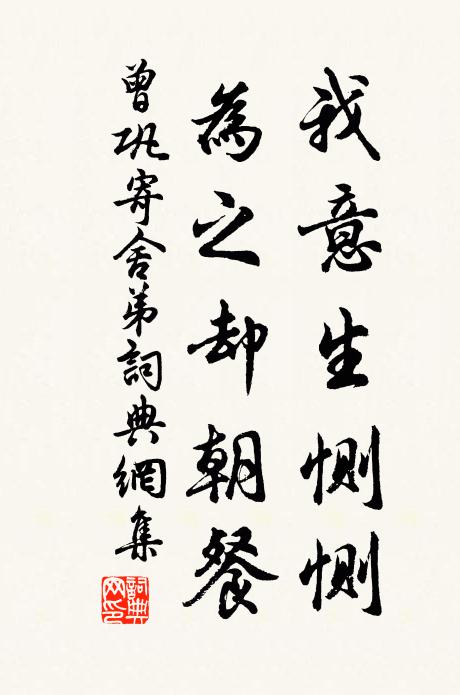 我意生惻惻
為之却朝餐
曾巩寄舍弟詞典網集
詞典網印